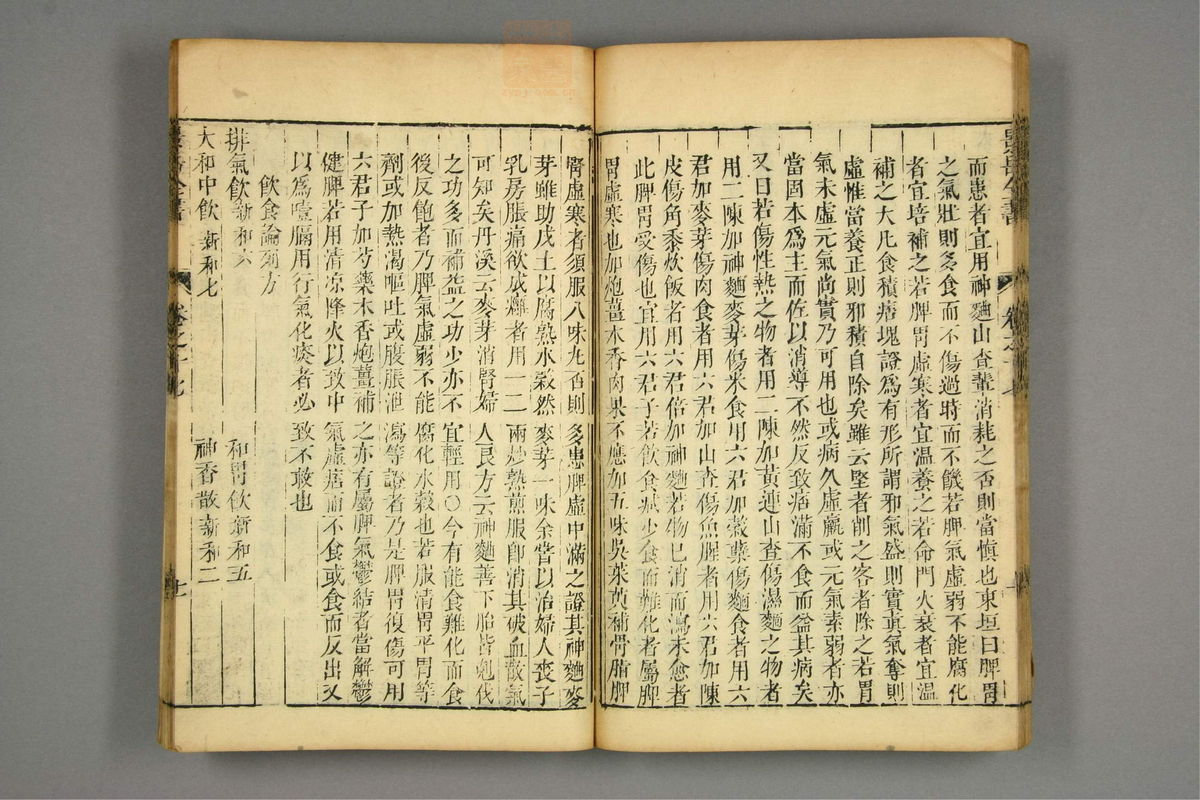 而患者宜用神麯山查輩消耗之否則當慎也東垣曰脾胃
之氣壯則多食而不傷過時而不饑若脾氣虛弱不能腐化
者宜培補之若脾胃虛寒者宜溫養之若命門火衰者宜溫
補之大凡食積痞塊證爲有形所謂邪氣盛則實眞氣奪則
虛惟當養正則邪積自除矣雖云堅者削之客者除之若胃
氣未虛元氣尚實乃可用也或病久虛羸或元氣素弱者亦
當固本爲主而佐以消導不然反致痞滿不食而益其病矣
又曰若傷性熱之物者用二陳加黃連山查傷濕麵之物者
用二陳加神麯麥芽傷米食用六君加穀蘖傷麵食者用六
君加麥芽傷肉食者用六君加山查傷魚腥者用六君加陳
皮傷角黍炊飯者用六君倍加神麯若物已消而瀉未愈者
此脾胃受傷也宜用六君子若飲食減少食而難化者屬脾
胃虛寒也加炮薑木香肉果不應加五味吳茱萸補骨脂脾
腎虛寒者須服八味丸否則多患脾虛中滿之證其神麯麥
芽雖助戊土以腐熟水穀然麥芽一味余嘗以治婦人喪子
乳房脹痛欲成癰者用一二兩炒熟煎服卽消其破血散氣
可知矣丹溪云麥芽消腎婦人良方云神麯善下胎皆剋伐
之功多而補益之功少亦不宜輕用○今有能食難化而食
後反飽者乃脾氣虛弱不能腐化水穀也若服清胃平胃等
劑或加熱渴嘔吐或腹脹泄瀉等證者乃是脾胃復傷可用
六君子加芍藥木香炮薑補之亦有屬脾氣鬱結者當解鬱
健脾若用清凉降火以致中氣虛痞而不食或食而反出又
以爲噎膈用行氣化痰者必致不救也
飲食論列方
排氣飲新和六
和胃飲新和五
大和中飲新和七
神香散新和二
卷之十七